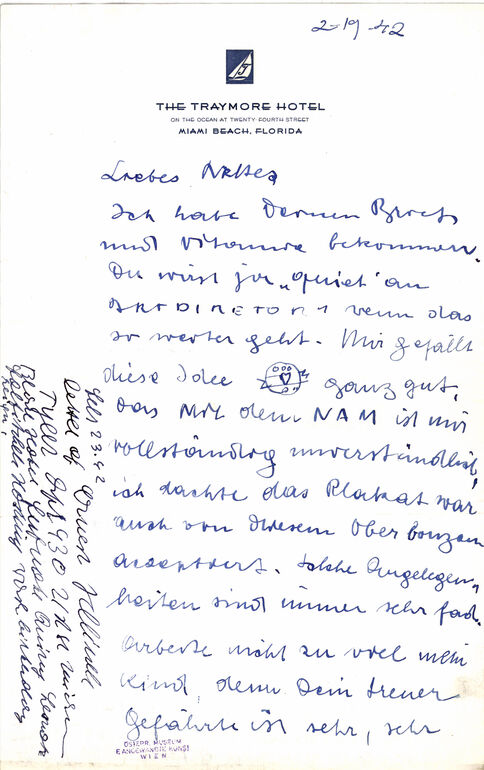 2-19-42
THE TRAYMORE HOTEL
ON THE OCEAN AT TWENTY-FOURTH STREET
MIAMI BEACH, FLORIDA
Liebes
Ich habe Deinen Brief
und Vitamine bekommen.
Du wirst ja „quiet" an
ARTDIRETOR! wenn das
so weiter geht. Mir gefällt
diese Idee ganz gut,
das Mit dem NAM ist mir
vollständig unverständlich,
ich dachte das Plakat war
auch von diesem Oberbonzen
acceptiert. Solche Angelegen-
heiten sind immer sehr fad.
Arbeite nicht zu viel mein
Kind, denn Dein treuer
Gefährte ist sehr, sehr
Feb 23.42
Letter of Ernest
Tyler
ÖSTERR. MUSEUM
F. ANGEWANDTE KUNST
WIEN